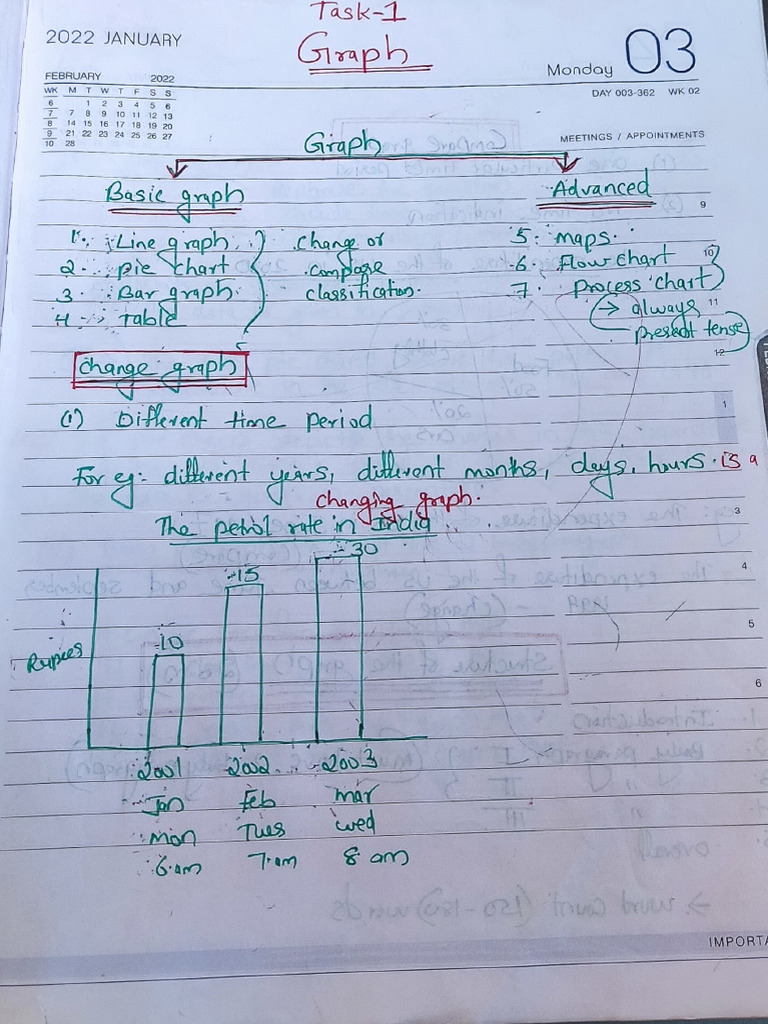 Task-1
2022 JANUARY
Graph
Monday 03
FEBRUARY 2022
WK M T W T F S S
6 1 2 3 4 5 6
7 7 8 9 10 11 12 13
8 14 15 16 17 18 19 20
9 21 22 23 24 25 26 27
10 28
DAY 003-362 WK 02
MEETINGS / APPOINTMENTS
Graph
Basic graph
Advanced
9
1. Line graph
2. pie chart
3. Bar graph.
4. table
change or
compare
classification.
5. maps.
6. Flow chart
10
7. process chart
→ always
11
present tense
12
change graph
1
(1) Different time period
For eg:- different years, different months, days, hours. is a
changing graph.
3
The petrol rate in India
4
30
15
10
5
Rupees
6
2001 2002 2003
Jan Feb mar
mon Tues wed
6.am 7.am 8 am
IMPORTA